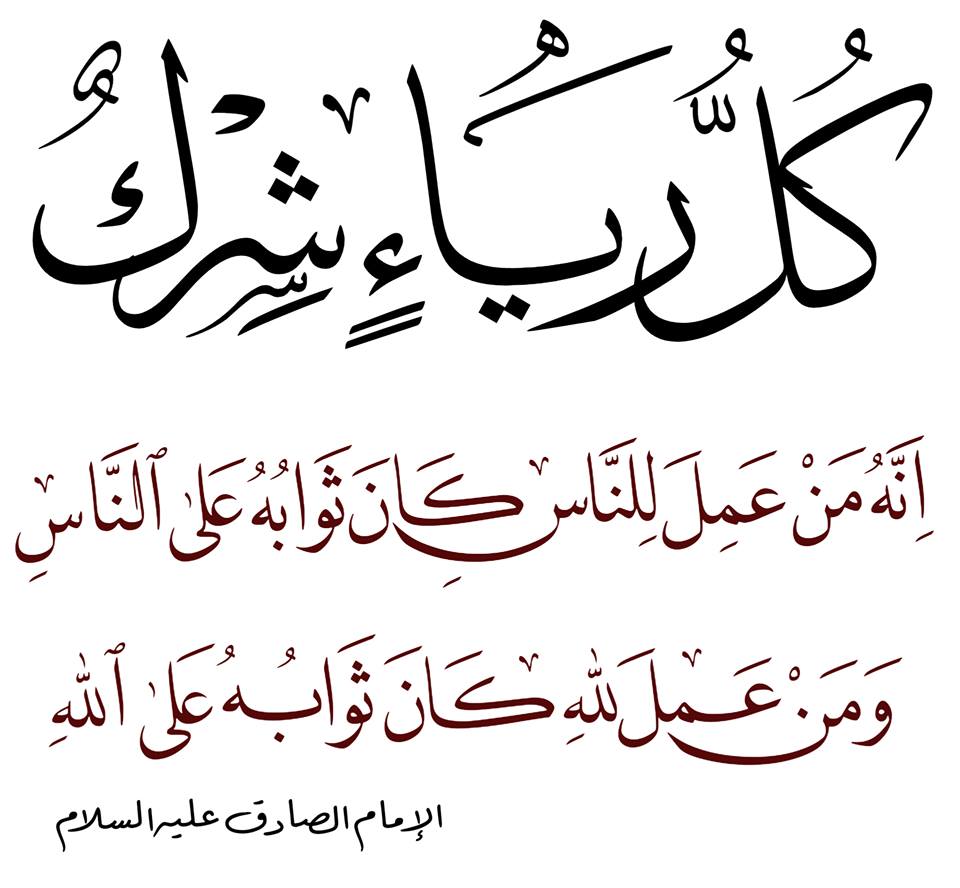 كُلُّ رِيَاءٍ شِرْكٌ
اِنَّهُ مَنْ عَمِلَ لِلنَّاسِ كَانَ ثَوَابُهُ عَلَى ٱلنَّاسِ
وَمَنْ عَمِلَ لِلّٰهِ كَانَ ثَوَابُهُ عَلَى ٱللهِ
الإمام الصادق عليه السلام